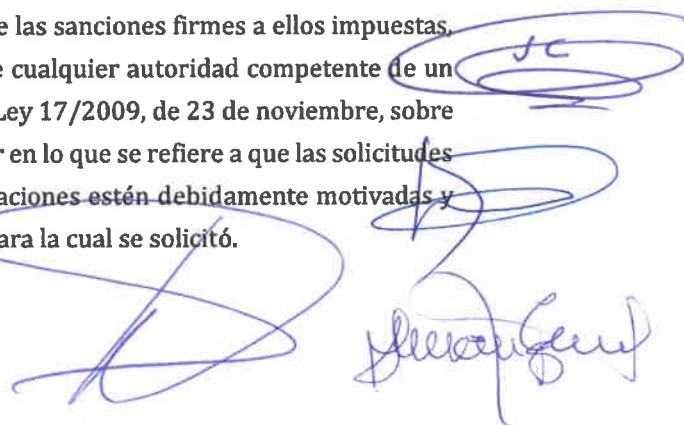 e las sanciones firmes a ellos impuestas,
e cualquier autoridad competente de un
Ley 17/2009, de 23 de noviembre, sobre
r en lo que se refiere a que las solicitudes
aciones estén debidamente motivadas y
ara la cual se solicitó.
JC